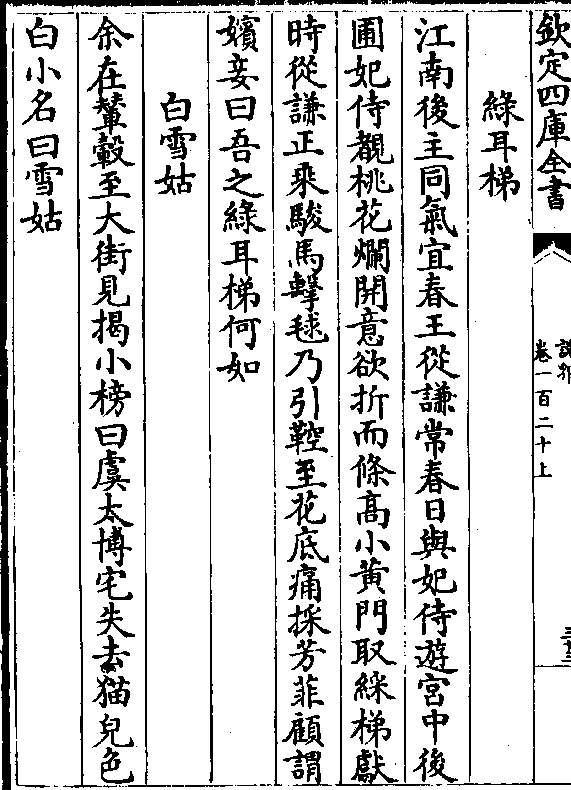 欽定四庫全書
說郛
卷一百二十上
綠耳梯
江南後主同氣宜春王從謙常春日與妃侍遊宮中後
圃妃侍覩桃花爛開意欲折而條髙小黃門取綵梯獻
時從謙正乘駿馬擊毬乃引鞚至花底痛採芳菲顧謂
嬪妾曰吾之綠耳梯何如
白雪姑
余在輦轂至大街見揭小榜曰虞太博宅失去猫兒色
白小名曰雪姑